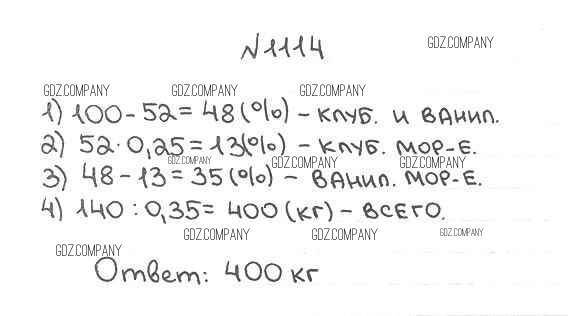 N1114
GDZ.COMPANY
GDZ.COMPANY GDZ.COMPANY GDZ.COMPANY
1) 100 - 52 = 48 (%) - КЛУБ. И ВАНИЛ.
2) 52 · 0,25 = 13 (%) - КЛУБ. МОР-Е.
GDZ.COMPANY GDZ.COMPANY GDZ.COMPANY
3) 48 - 13 = 35 (%) - ВАНИЛ. МОР-Е.
4) 140 : 0,35 = 400 (КГ) - ВСЕГО.
GDZ.COMPANY GDZ.COMPANY GDZ.COMPANY
GDZ.COMPANY
Ответ: 400 кг